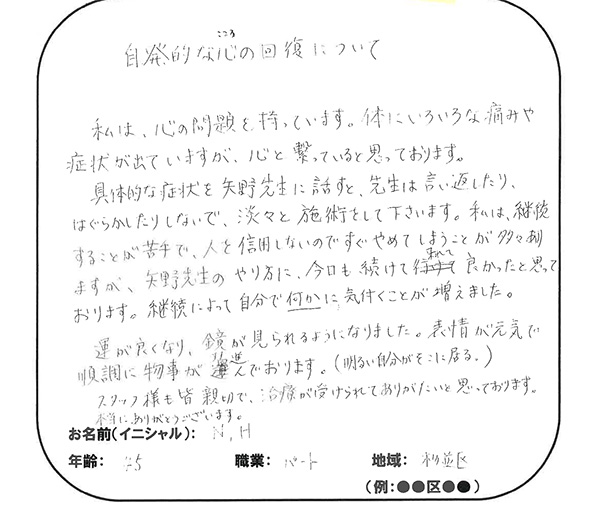 こころ
自発的な心の回復について
私は、心の問題を持っています。体にいろいろな痛みや
症状が出ていますが、心と繋っていると思っております。
具体的な症状を矢野先生に話すと、先生は言い返したり、
はぐらかしたりしないで、淡々と施術をして下さいます。私は、継続
することが苦手で、人を信用しないのですぐやめてしまうことが多々あり
ますが、矢野先生のやり方に、今日も続けて来れて良かったと思って
おります。継続によって自分で何かに気付くことが増えました。
運が良くなり、鏡が見られるようになりました。表情が元気で
順調に物事が進んでおります。(明るい自分がそこに居る。)
スタッフ様も皆親切で、治療が受けられてありがたいと思っております。
本当にありがとうございます。
お名前(イニシャル): N,H
年齢: 45 職業: パート 地域: 杉並区
(例:●●区●●)